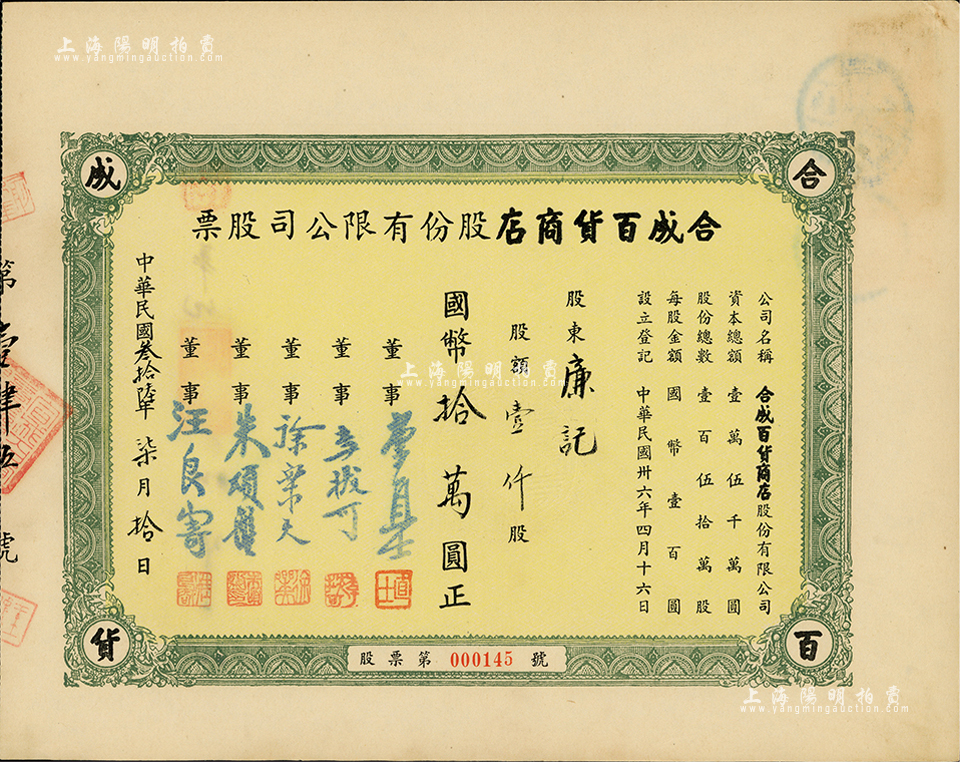 上海陽明拍賣
www.yangmingauction.com
合
成
百
貨
合成百貨商店股份有限公司股票
公司名稱 合成百貨商店股份有限公司
資本總額 壹萬伍千萬圓
股份總數 壹百伍拾萬股
每股金額 國幣壹百圓
設立登記 中華民國卅六年四月十六日
股東 廉記
股額 壹仟股
國幣拾萬圓正
董事
董事
董事
董事 朱頌
董事 汪良寄
中華民國叁拾陸年柒月拾日
第 壹肆伍號
股票第 000145 號
上海陽明拍賣
www.yangmingauction.com
上海陽明拍賣
www.yangmingauction.com